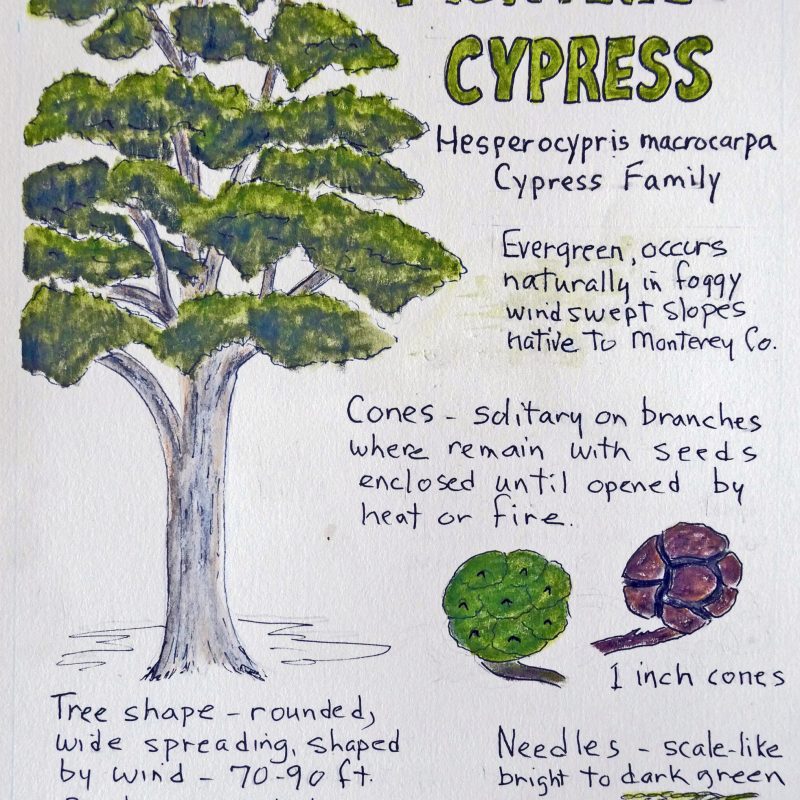 CYPRESS
Hesperocypris macrocarpa
Cypress Family
Evergreen, occurs
naturally in foggy
windswept slopes
native to Monterey Co.
Cones - solitary on branches
where remain with seeds
enclosed until opened by
heat or fire.
1 inch cones
Tree shape - rounded,
wide spreading, shaped
by wind - 70-90 ft.
Needles - scale-like
bright to dark green